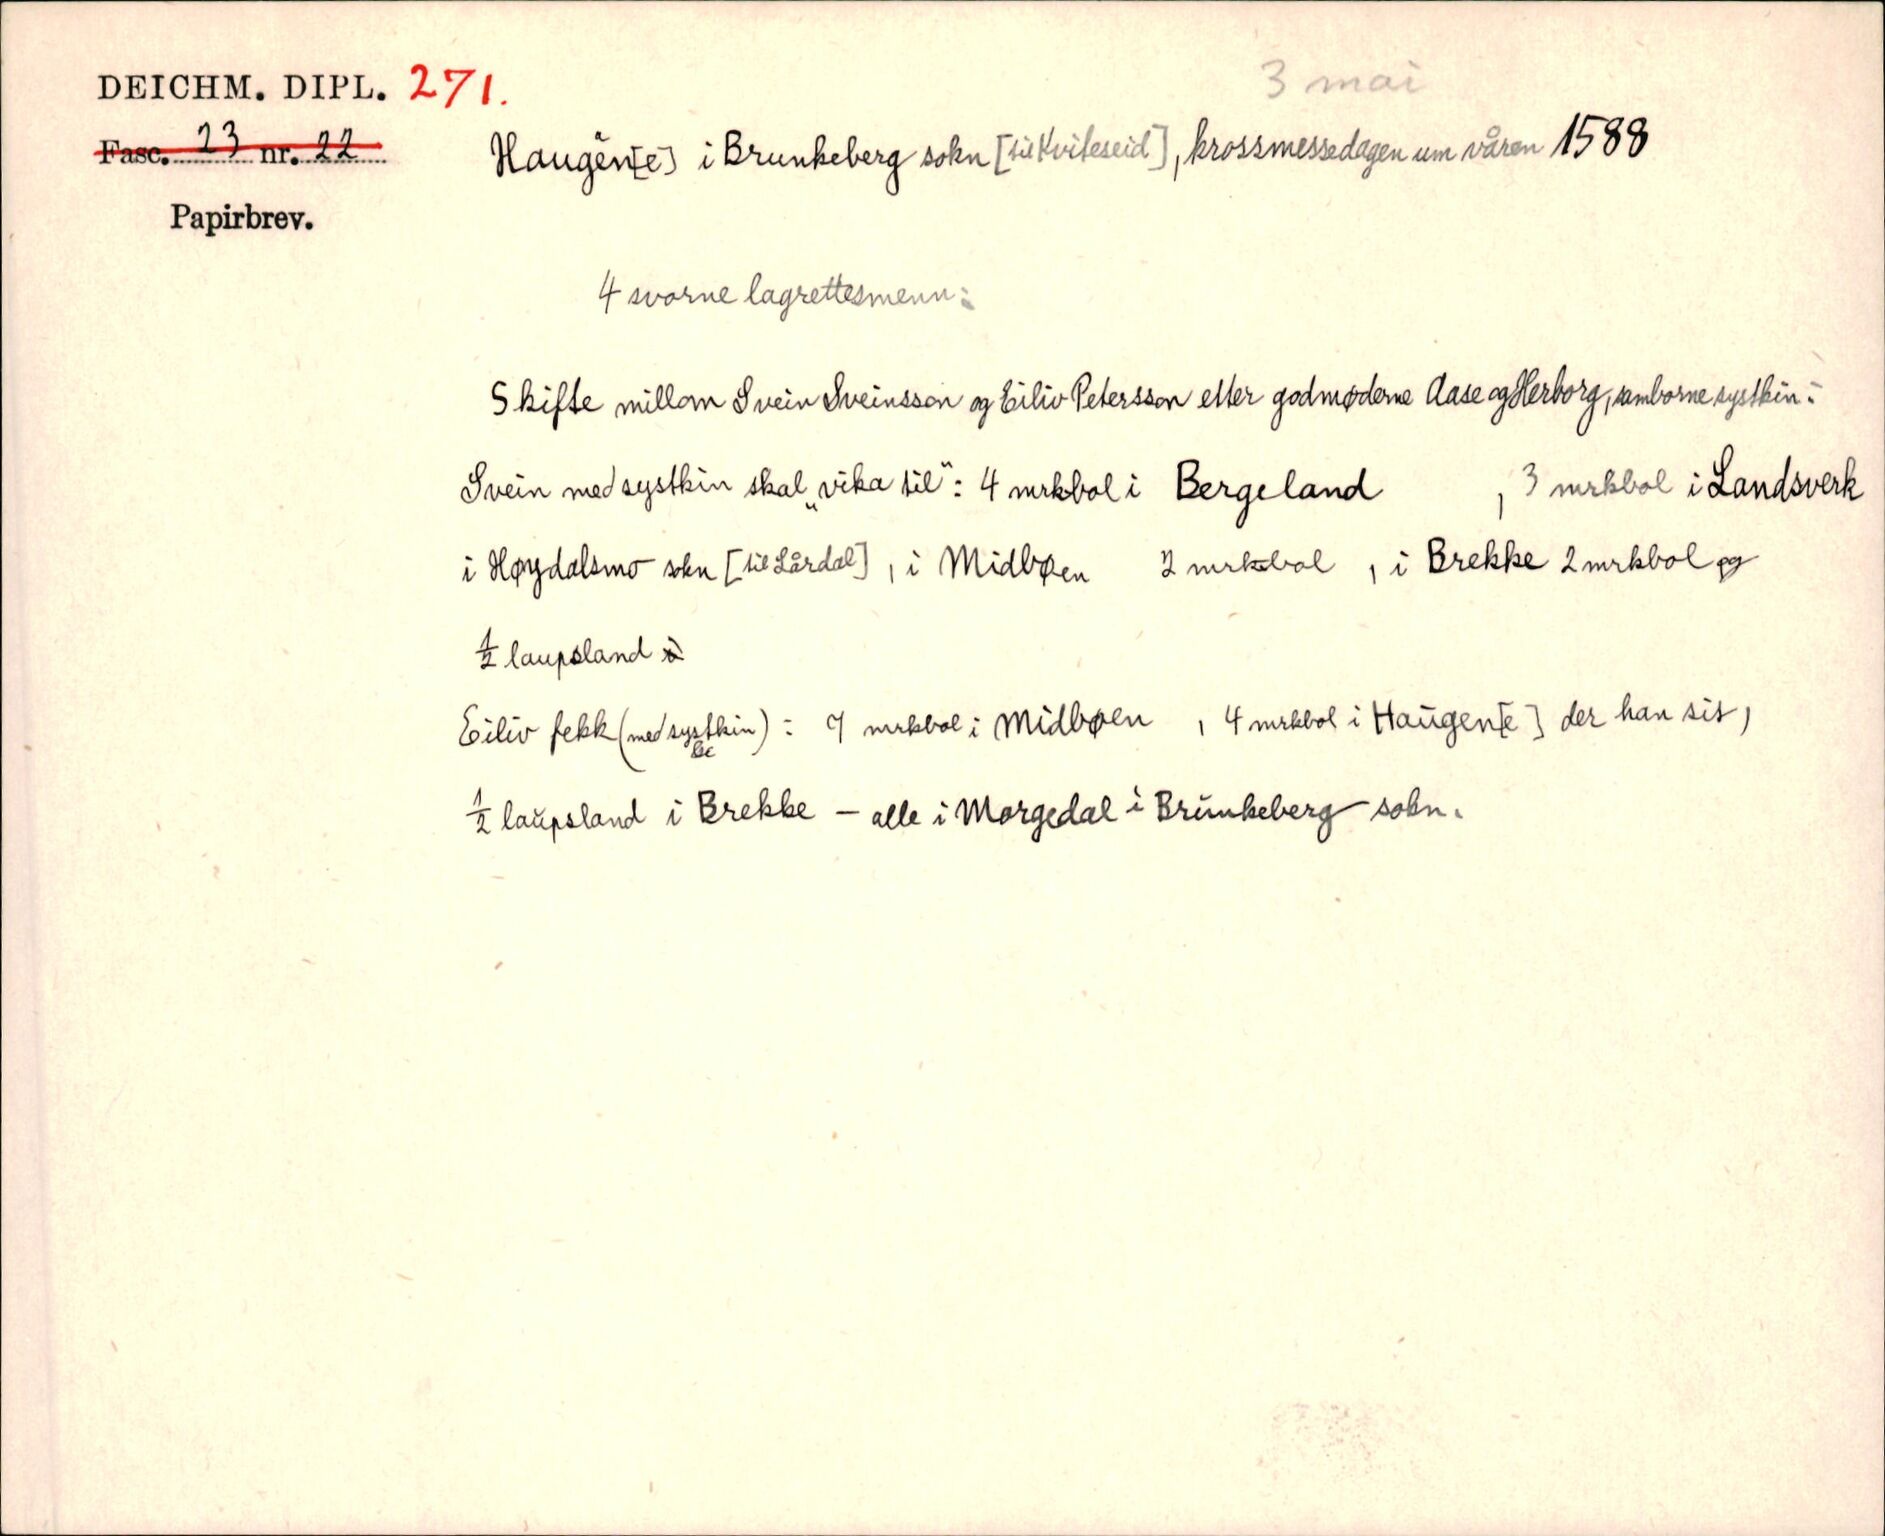 DEICHM. DIPL. 271.
3 mai
Fasc. 23 nr. 22
Haugen[e] i Brunkeberg sokn [til Kviteseid], krossmessedagen um våren 1588
Papirbrev.
4 svorne lagrettesmenn:
Skifte millom Svein Sveinsson og Eiliv Petersson etter godmøderne Aase og Herborg, samborne systkin:
Svein med systkin skal „vika til“: 4 mrkbol i Bergeland , 3 mrkbol i Landsverk
i Høydalsmo sokn [til Lårdal], i Midbøen 2 mrkbol , i Brekke 2 mrkbol og
1/2 laupsland
Eiliv fekk (med systkin): 7 mrkbol i Midbøen , 4 mrkbol i Haugen[e] der han sit,
1/2 laupsland i Brekke – alle i Morgedal i Brunkeberg sokn.